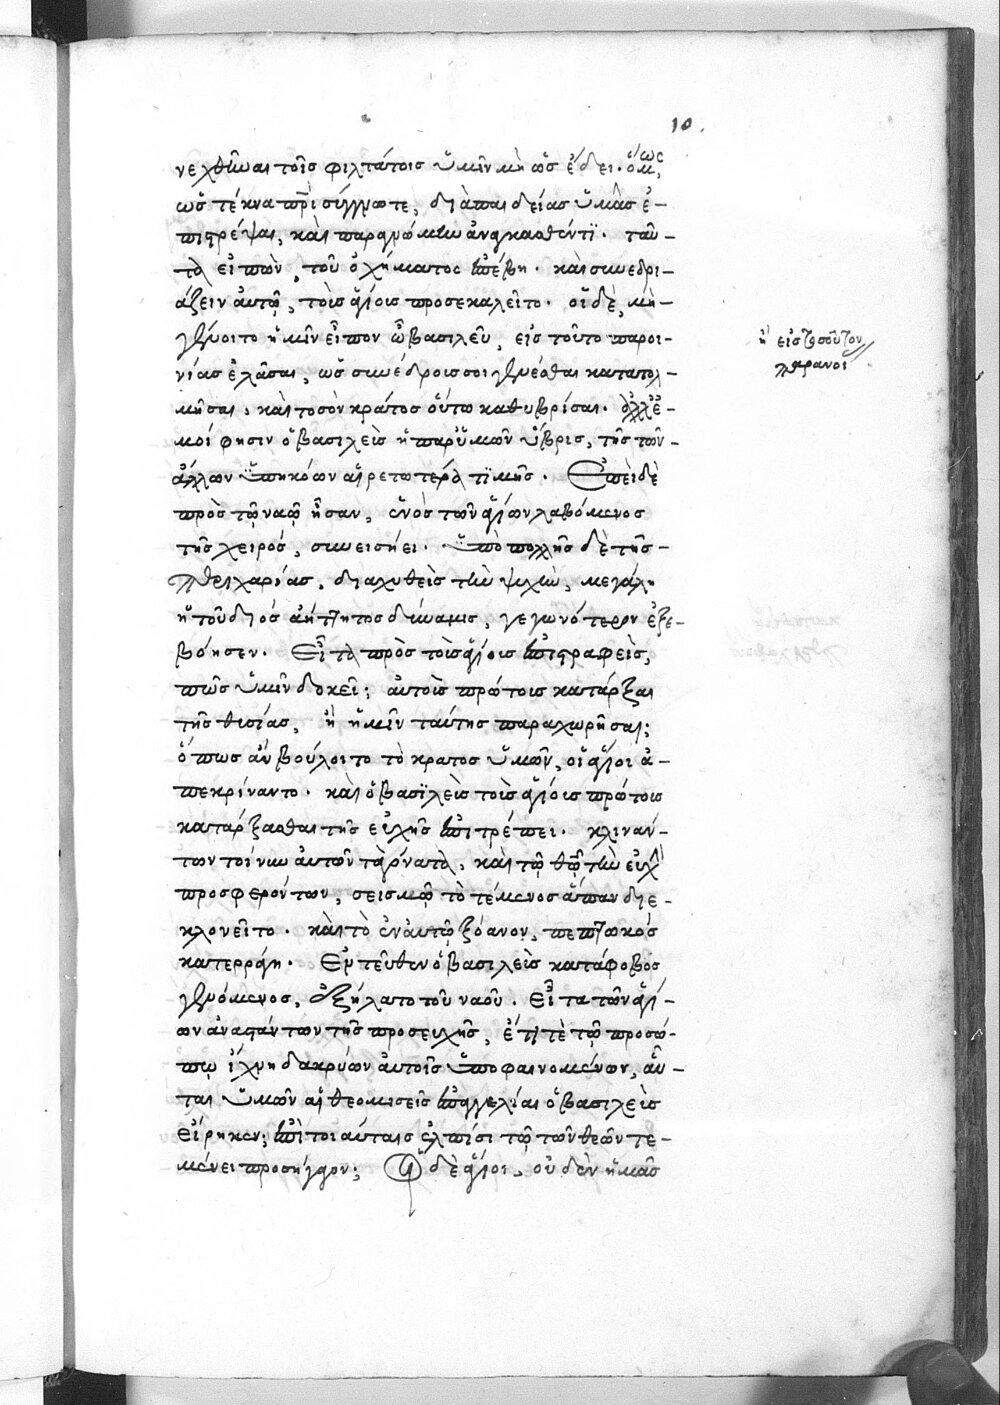 10.
νεχθῆναι τοῖς φιλτάτοις ὑμῖν μὴ ὡς ἔδει· ὅμως,
ὡς τέκνα πατρὶ σύγγνωτε, δι' ἀπαιδείας ὑμᾶς ἐ-
πιτρέψαι, καὶ παρανόμων ἀναγκασθέντι. ταῦ-
τα εἰπὼν, τοῦ ὀχήματος ἐπέβη. καὶ συνεδρι-
άζειν αὐτῷ, τοῖς ἁγίοις προσεκαλεῖτο. οἱ δὲ, μὴ
γένοιτο ἡμῖν εἶπον ὦ βασιλεῦ, εἰς τοῦτο παροι-
νίας ἐλᾶσαι, ὡς συνέδροις σοι γενέσθαι κατατολ-
μῆσαι, καὶ τοσὸν κράτος οὕτω καθυβρίσαι. ἀλλ' ἐ-
μοί φησιν ὁ βασιλεὺς ἡ παρ' ὑμῶν ὕβρις, τῆς τῶν
ἄλλων ὑπηκόων αἱρετωτέρα τιμῆς. Ἐπεὶ δὲ
πρὸς τῷ ναῷ ἦσαν, ἑνὸς τῶν ἁγίων λαβόμενος
τῆς χειρός, συνεισήει. ὑπὸ πολλῆς δὲ τῆς
περιχαρίας, διαχυθεὶς τὴν ψυχὴν, μεγάλη
ἡ τοῦ διὸς ἀήττητος δύναμις, γεγωνότερον ἐξε-
βόησεν. Εἶτα πρὸς τοὺς ἁγίους ἐπιστραφεὶς,
πῶς ὑμῖν δοκεῖ; αὐτοὺς πρώτοις κατάρξαι
τῆς θυσίας, ἢ ἡμῖν ταύτης παραχωρῆσαι;
ὅπως ἂν βούλοιτο τὸ κράτος ὑμῶν, οἱ ἅγιοι ἀ-
πεκρίναντο. καὶ ὁ βασιλεὺς τοῖς ἁγίοις πρώτοις
κατάρξασθαι τῆς εὐχῆς ἐπιτρέπει. κλιναν-
των τοίνυν αὐτῶν τὰ γόνατα, καὶ τῷ θεῷ τὴν εὐχὴν
προσφερόντων, σεισμῷ τὸ τέμενος ἅπαν διε-
κλονεῖτο. καὶ τὸ ἐν αὐτῷ ξόανον, πεπτωκὸς
κατερράγη. Ἐντεῦθεν ὁ βασιλεὺς κατάφοβος
γενόμενος, ἐξήλατο τοῦ ναοῦ. Εἶτα τῶν ἁγί-
ων ἀναστάντων τῆς προσευχῆς, ἔτι τὲ τῷ προσώ-
πῳ ἴχνη δακρύων αὐτοῖς ὑποφαινομένων, αὗ-
ται ὑμῶν αἱ θεομισεῖς ἐπαγγελίαι ὁ βασιλεὺς
εἴρηκεν; ἐπὶ τοιαύταις ἐλπίσι τῷ τῶν θεῶν τε-
μένει προσήγγον; Οἱ δὲ ἅγιοι, οὐδὲν ἡμᾶς
ἢ εἰς τοσοῦτον
παρανοί